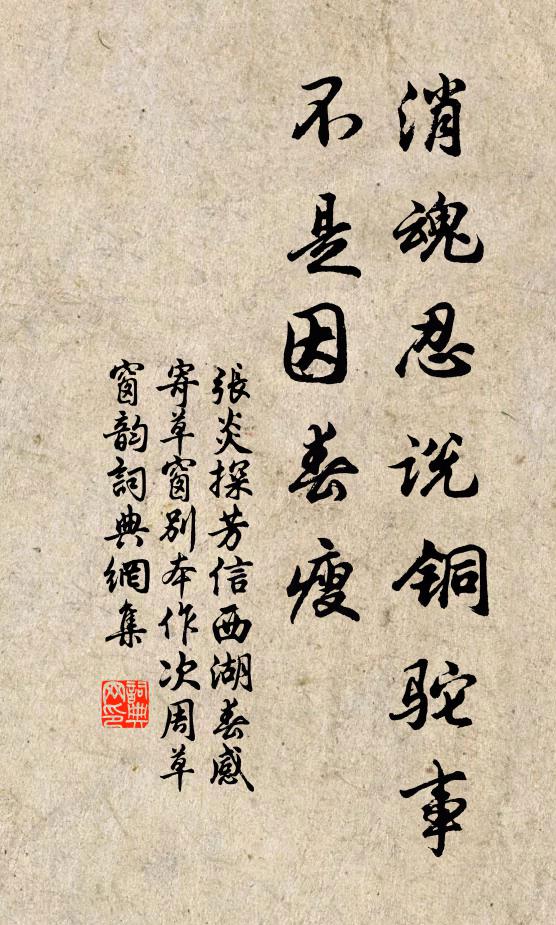 消魂忍说铜驼事
不是因春瘦
張炎探芳信西湖春感
寄草窗别本作次周草
窗韵詞典網集
詞典
网印